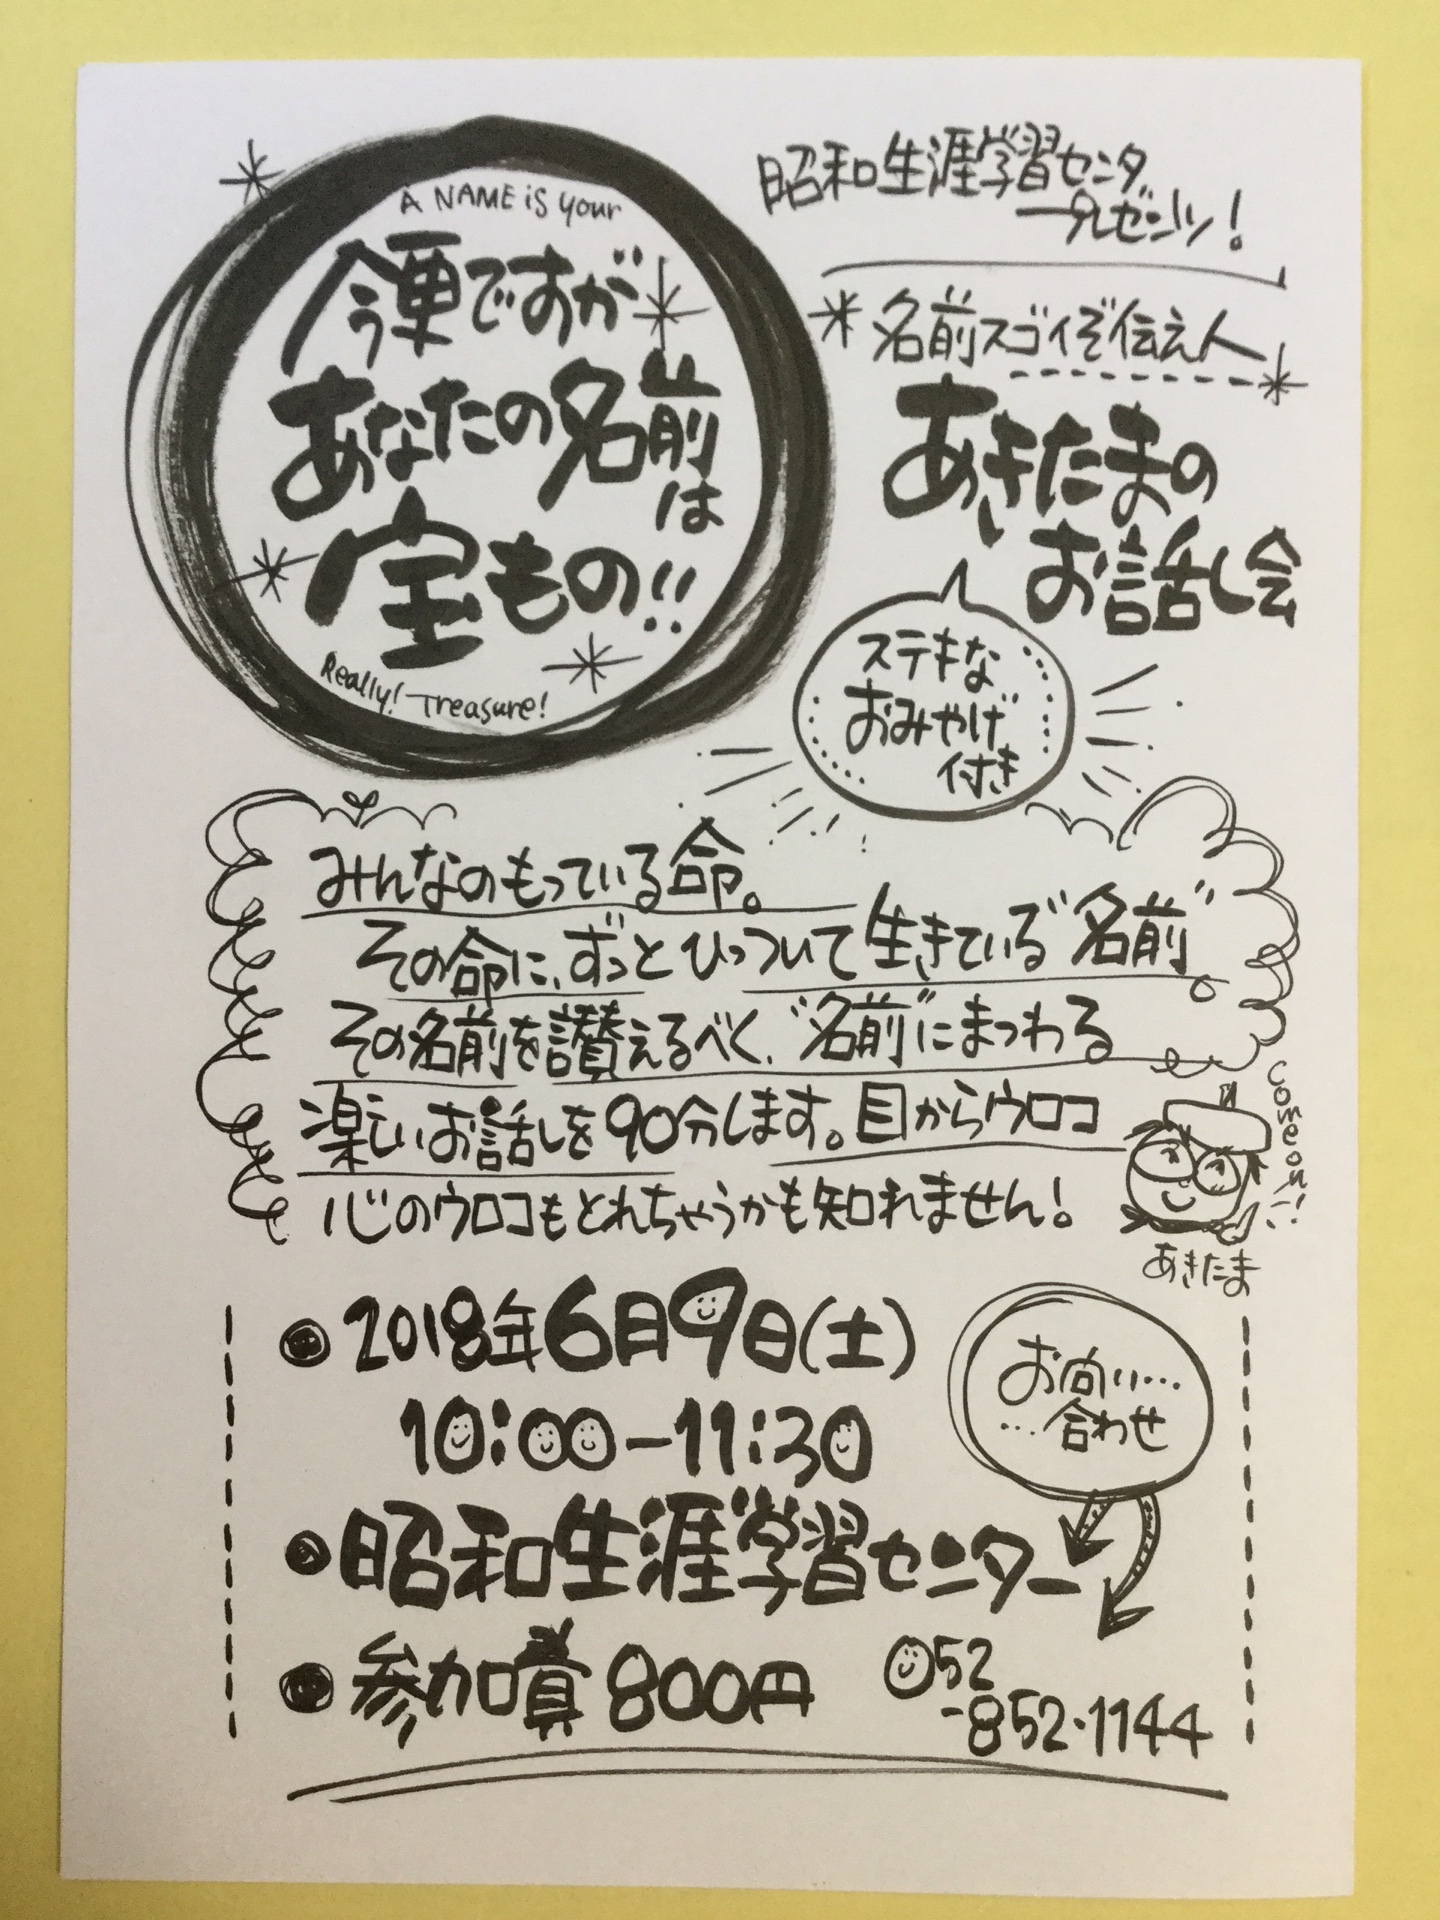 A NAME is your
今更ですが
あなたの名前は
宝もの!!
Really! Treasure!
昭和生涯学習センター
プレゼンツ!
名前スゴイぞ伝え人
あきたまの
お話し会
ステキな
おみやげ
付き
みんなのもっている命。
その命に、ずっとひっついて生きている"名前"。
その名前を讃えるべく、"名前"にまつわる
楽しいお話しを90分します。目からウロコ
心のウロコもとれちゃうかも知れません!
come on!!
あきたま
2018年6月9日(土)
10:00-11:30
昭和生涯学習センター
参加費 800円
お問い…
…合わせ
052
-852-1144